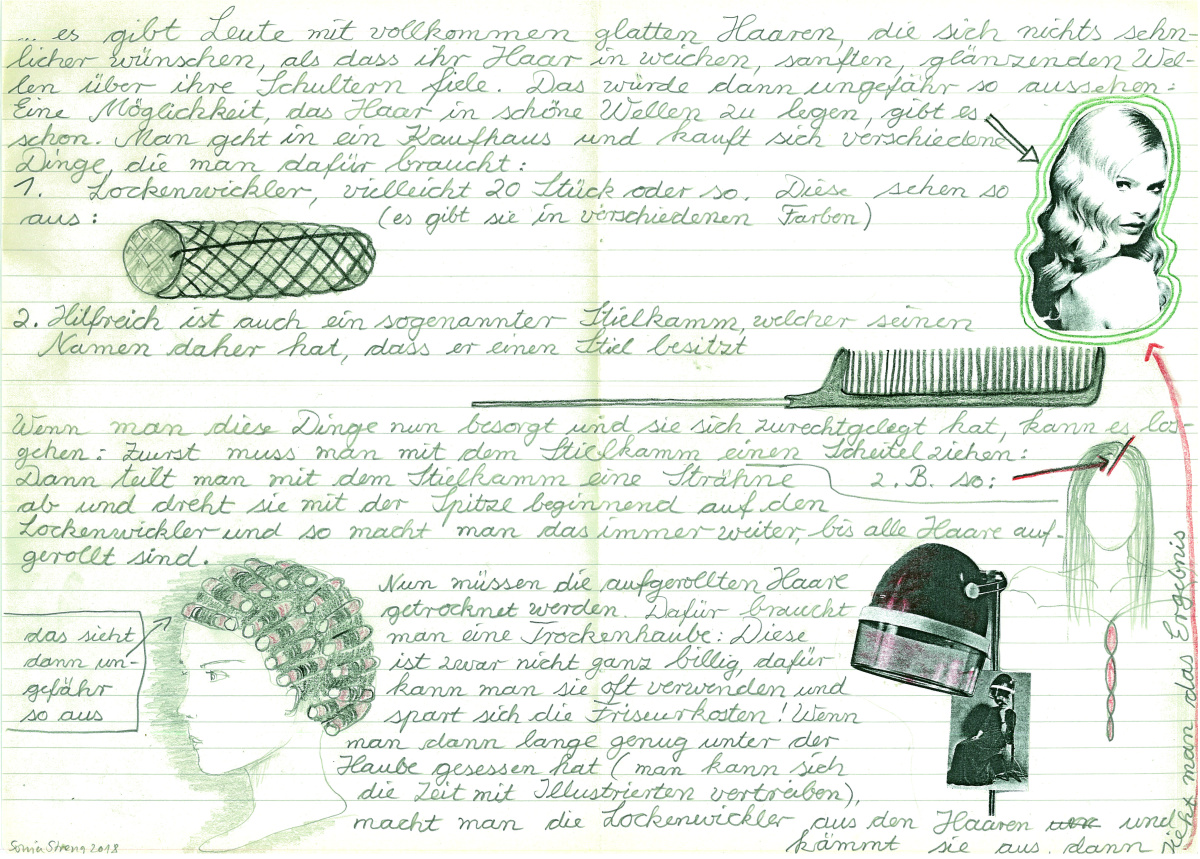 ... es gibt Leute mit vollkommen glatten Haaren, die sich nichts sehn-
licher wünschen, als dass ihr Haar in weichen, sanften, glänzenden Wel-
len über ihre Schultern fiele. Das würde dann ungefähr so aussehen:
Eine Möglichkeit, das Haar in schöne Wellen zu legen, gibt es
schon. Man geht in ein Kaufhaus und kauft sich verschiedene
Dinge, die man dafür braucht:
1. Lockenwickler, vielleicht 20 Stück oder so. Diese sehen so
aus: (es gibt sie in verschiedenen Farben)
2. Hilfreich ist auch ein sogenannter Stielkamm, welcher seinen
Namen daher hat, dass er einen Stiel besitzt
Wenn man diese Dinge nun besorgt und sie sich zurechtgelegt hat, kann es los-
gehen: Zuerst muss man mit dem Stielkamm einen Scheitel ziehen:
Dann teilt man mit dem Stielkamm eine Strähne
z. B. so:
ab und dreht sie mit der Spitze beginnend auf den
Lockenwickler und so macht man das immer weiter, bis alle Haare auf-
gerollt sind.
das sieht
dann un-
gefähr
so aus
Nun müssen die aufgerollten Haare
getrocknet werden. Dafür braucht
man eine Trockenhaube: Diese
ist zwar nicht ganz billig, dafür
kann man sie oft verwenden und
spart sich die Friseurkosten! Wenn
man dann lange genug unter der
Haube gesessen hat (man kann sich
die Zeit mit Illustrierten vertreiben),
macht man die Lockenwickler aus den Haaren und
kämmt sie aus, dann
sieht man das Ergebnis
Sonja Streng 2018